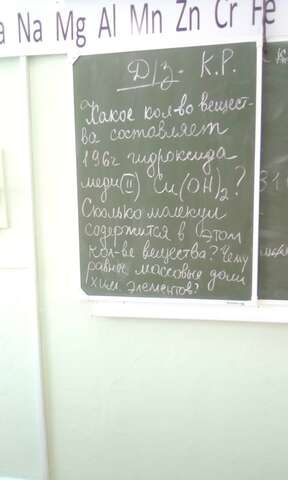 a Na Mg Al Mn Zn Cr Fe
Д/з. К.Р.
Какое кол-во вещест-
ва составляет
196г гидроксида
меди (II) Cu(OH)₂?
Сколько молекул
содержится в этом
кол-ве вещества? Чему
равны массовые доли
хим. элементов?